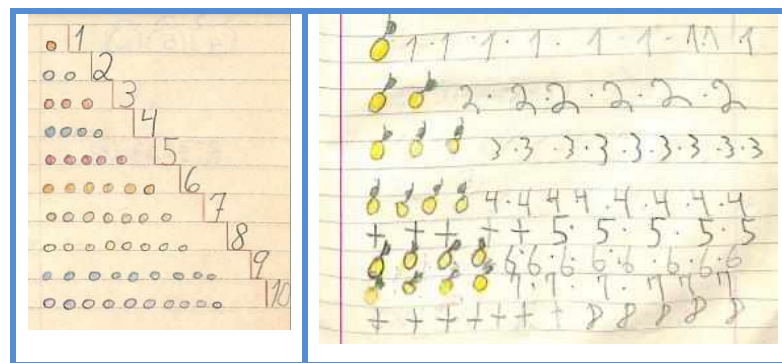 1
2
3
4
5
6
7
8
9
10
1 · 1 · 1 · 1 · 1 · 1 · 1 · 1 · 1
2 · 2 · 2 · 2 · 2 · 2
3 · 3 · 3 · 3 · 3 · 3 · 3 · 3 · 3
4 · 4 · 4 · 4 · 4 · 4 · 4
+ + + + + 5 · 5 · 5 · 5 · 5
6 · 6 · 6 · 6 · 6 · 6 · 6 · 6
7 · 7 · 7 · 7 · 7 · 7
+ + + + + + + 8 8 8 8 8